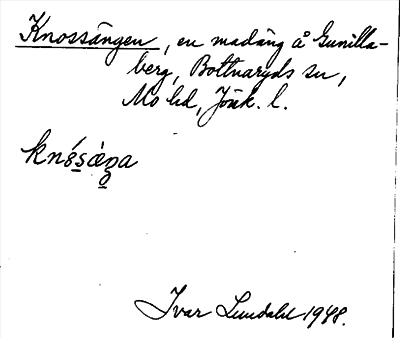 Knossängen, en madäng å Gunilla-
berg, Bottnaryds sn,
Mo hd, Jönk. l.
knósǽŋa
Ivar Lundahl 1948.